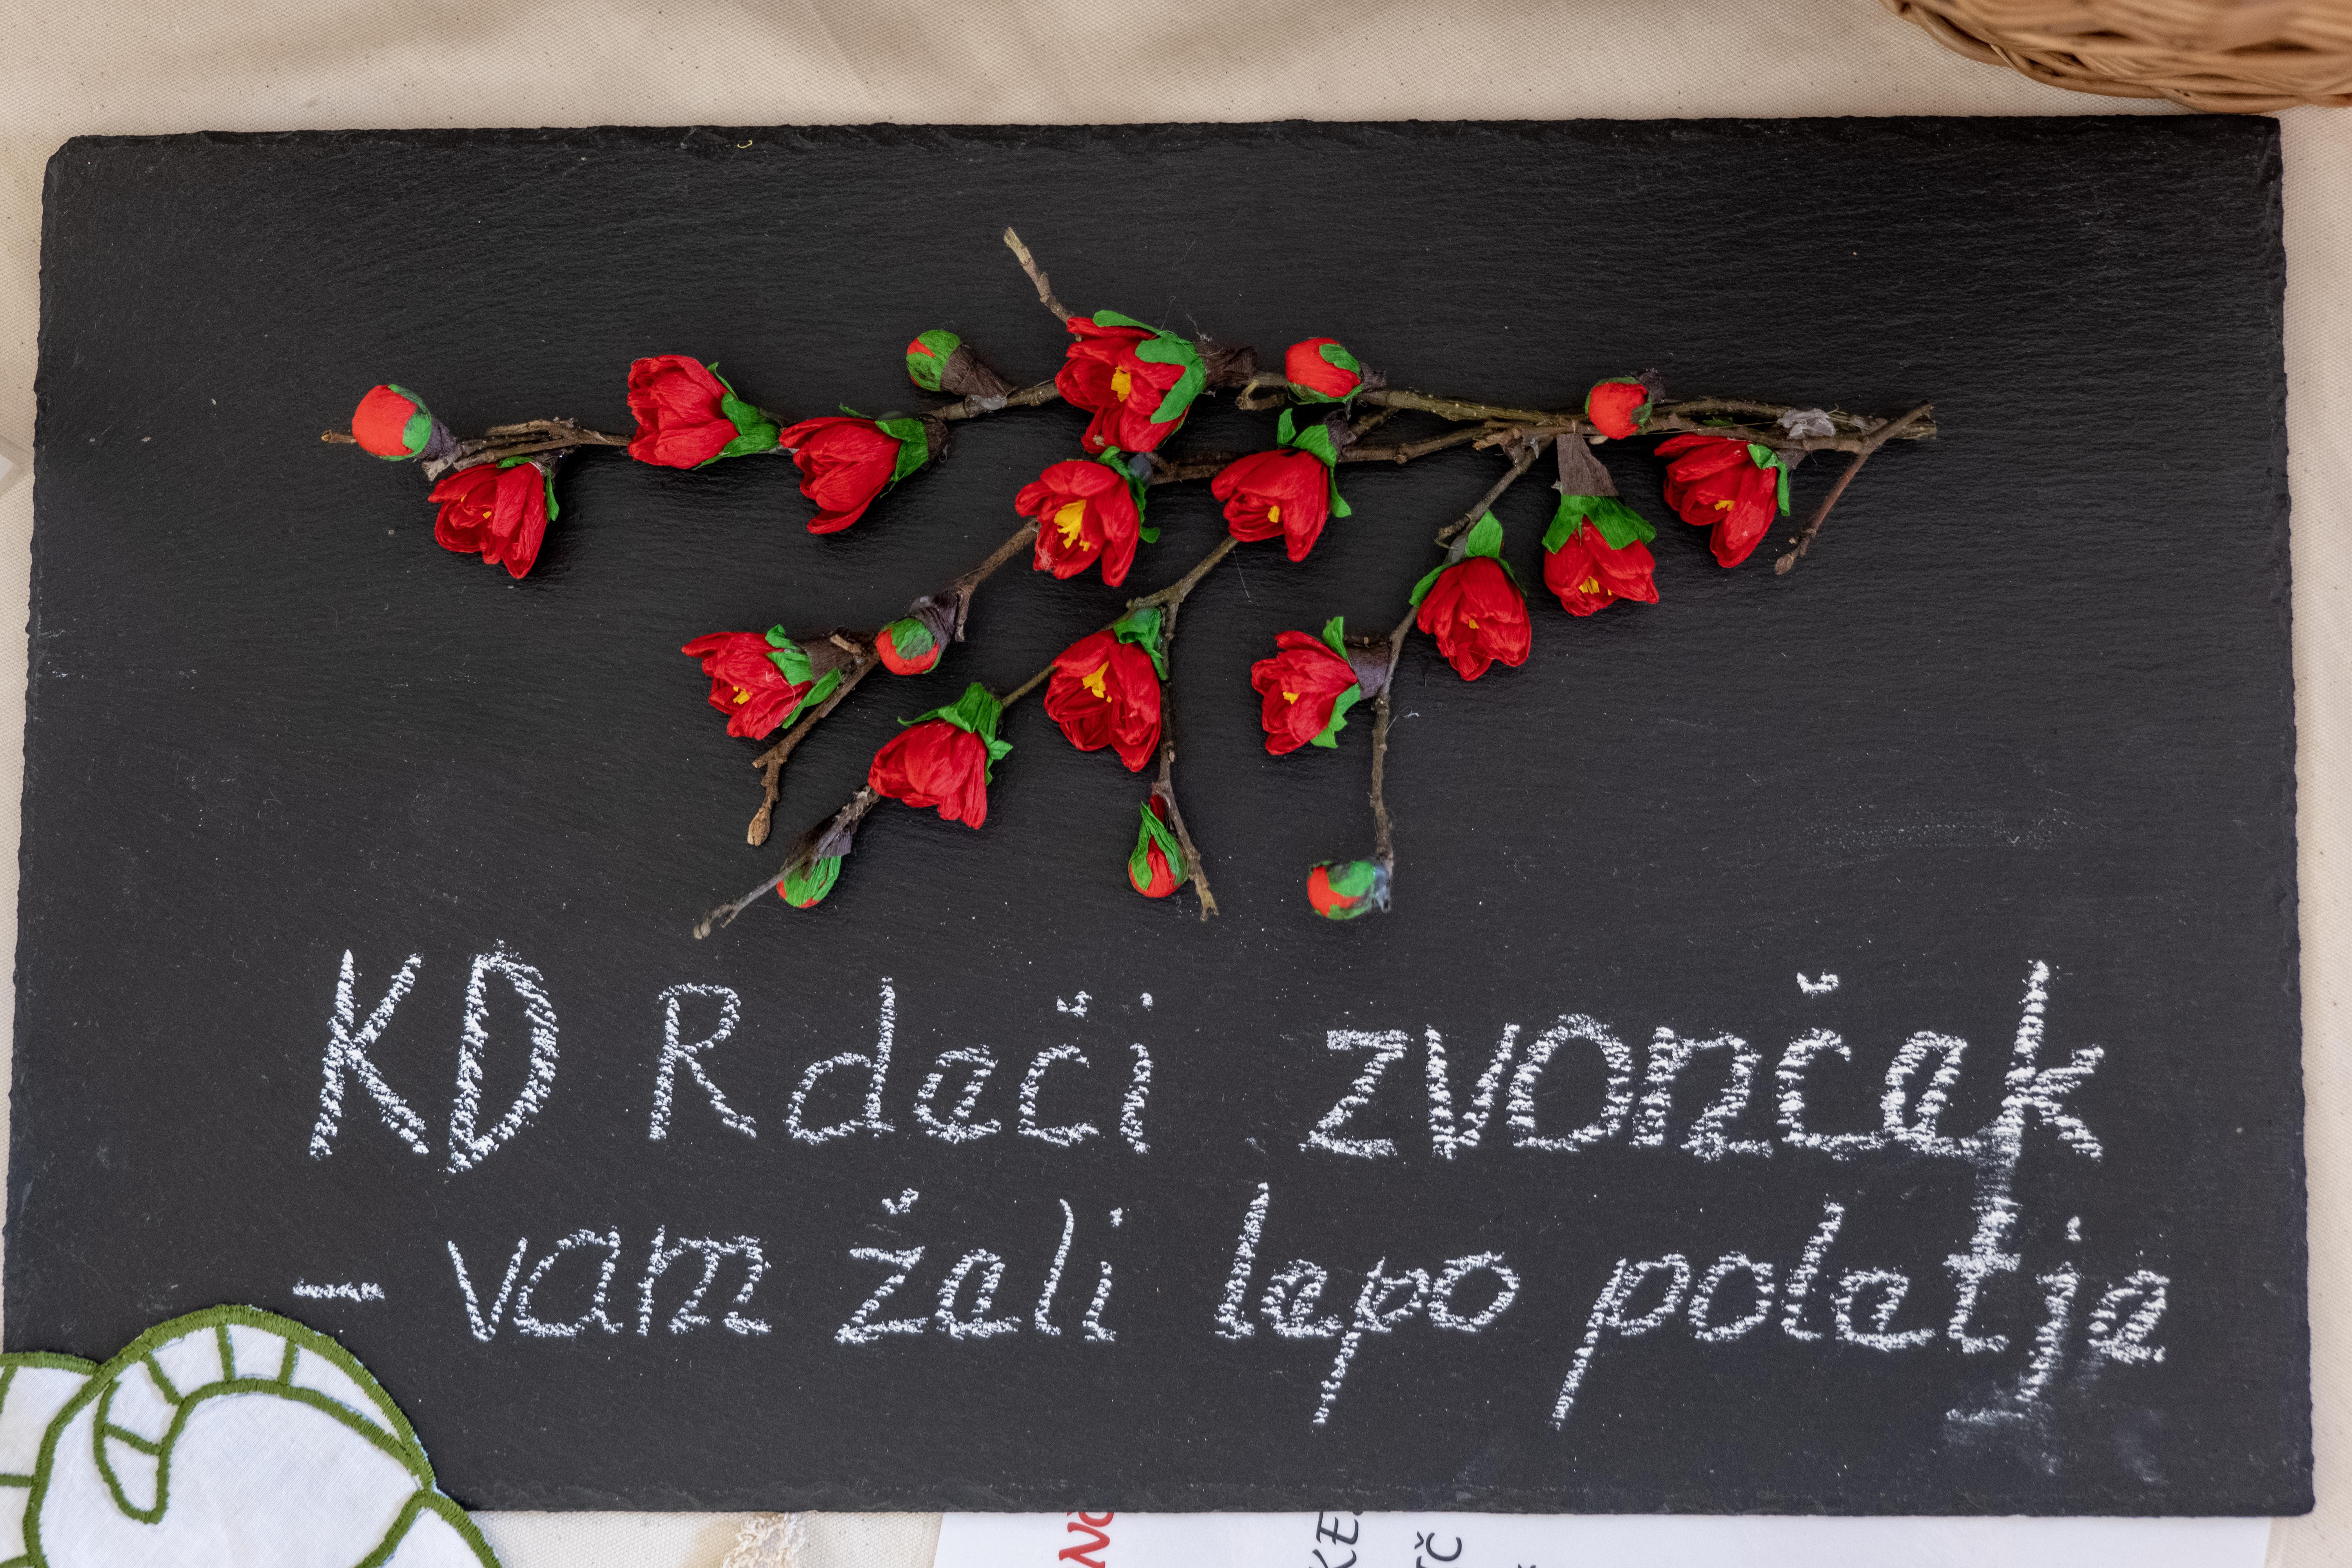 KD Rdeči zvonček
- vam želi lepo poletje